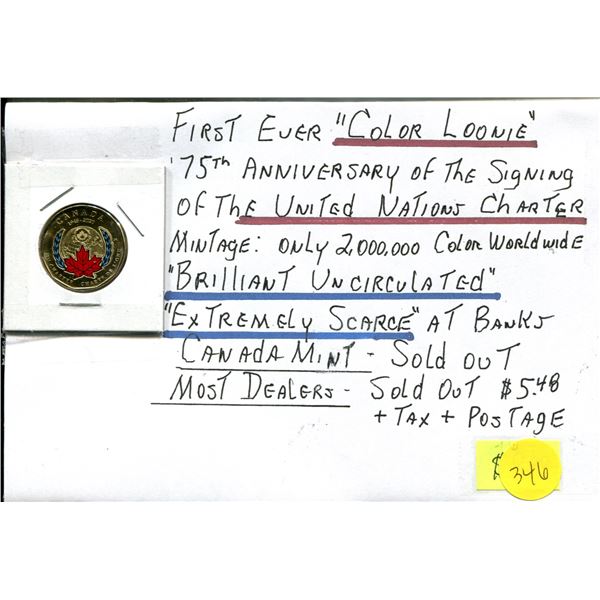 FIRST EVER "COLOR LOONIE"
'75TH ANNIVERSARY OF THE SIGNING
OF THE UNITED NATIONS CHARTER
MINTAGE: ONLY 2,000,000 COLOR WORLDWIDE
"BRILLIANT UNCIRCULATED"
"EXTREMELY SCARCE" AT BANKS
CANADA MINT - SOLD OUT
MOST DEALERS - SOLD OUT $5.48
+ TAX + POSTAGE
CANADA
$
346